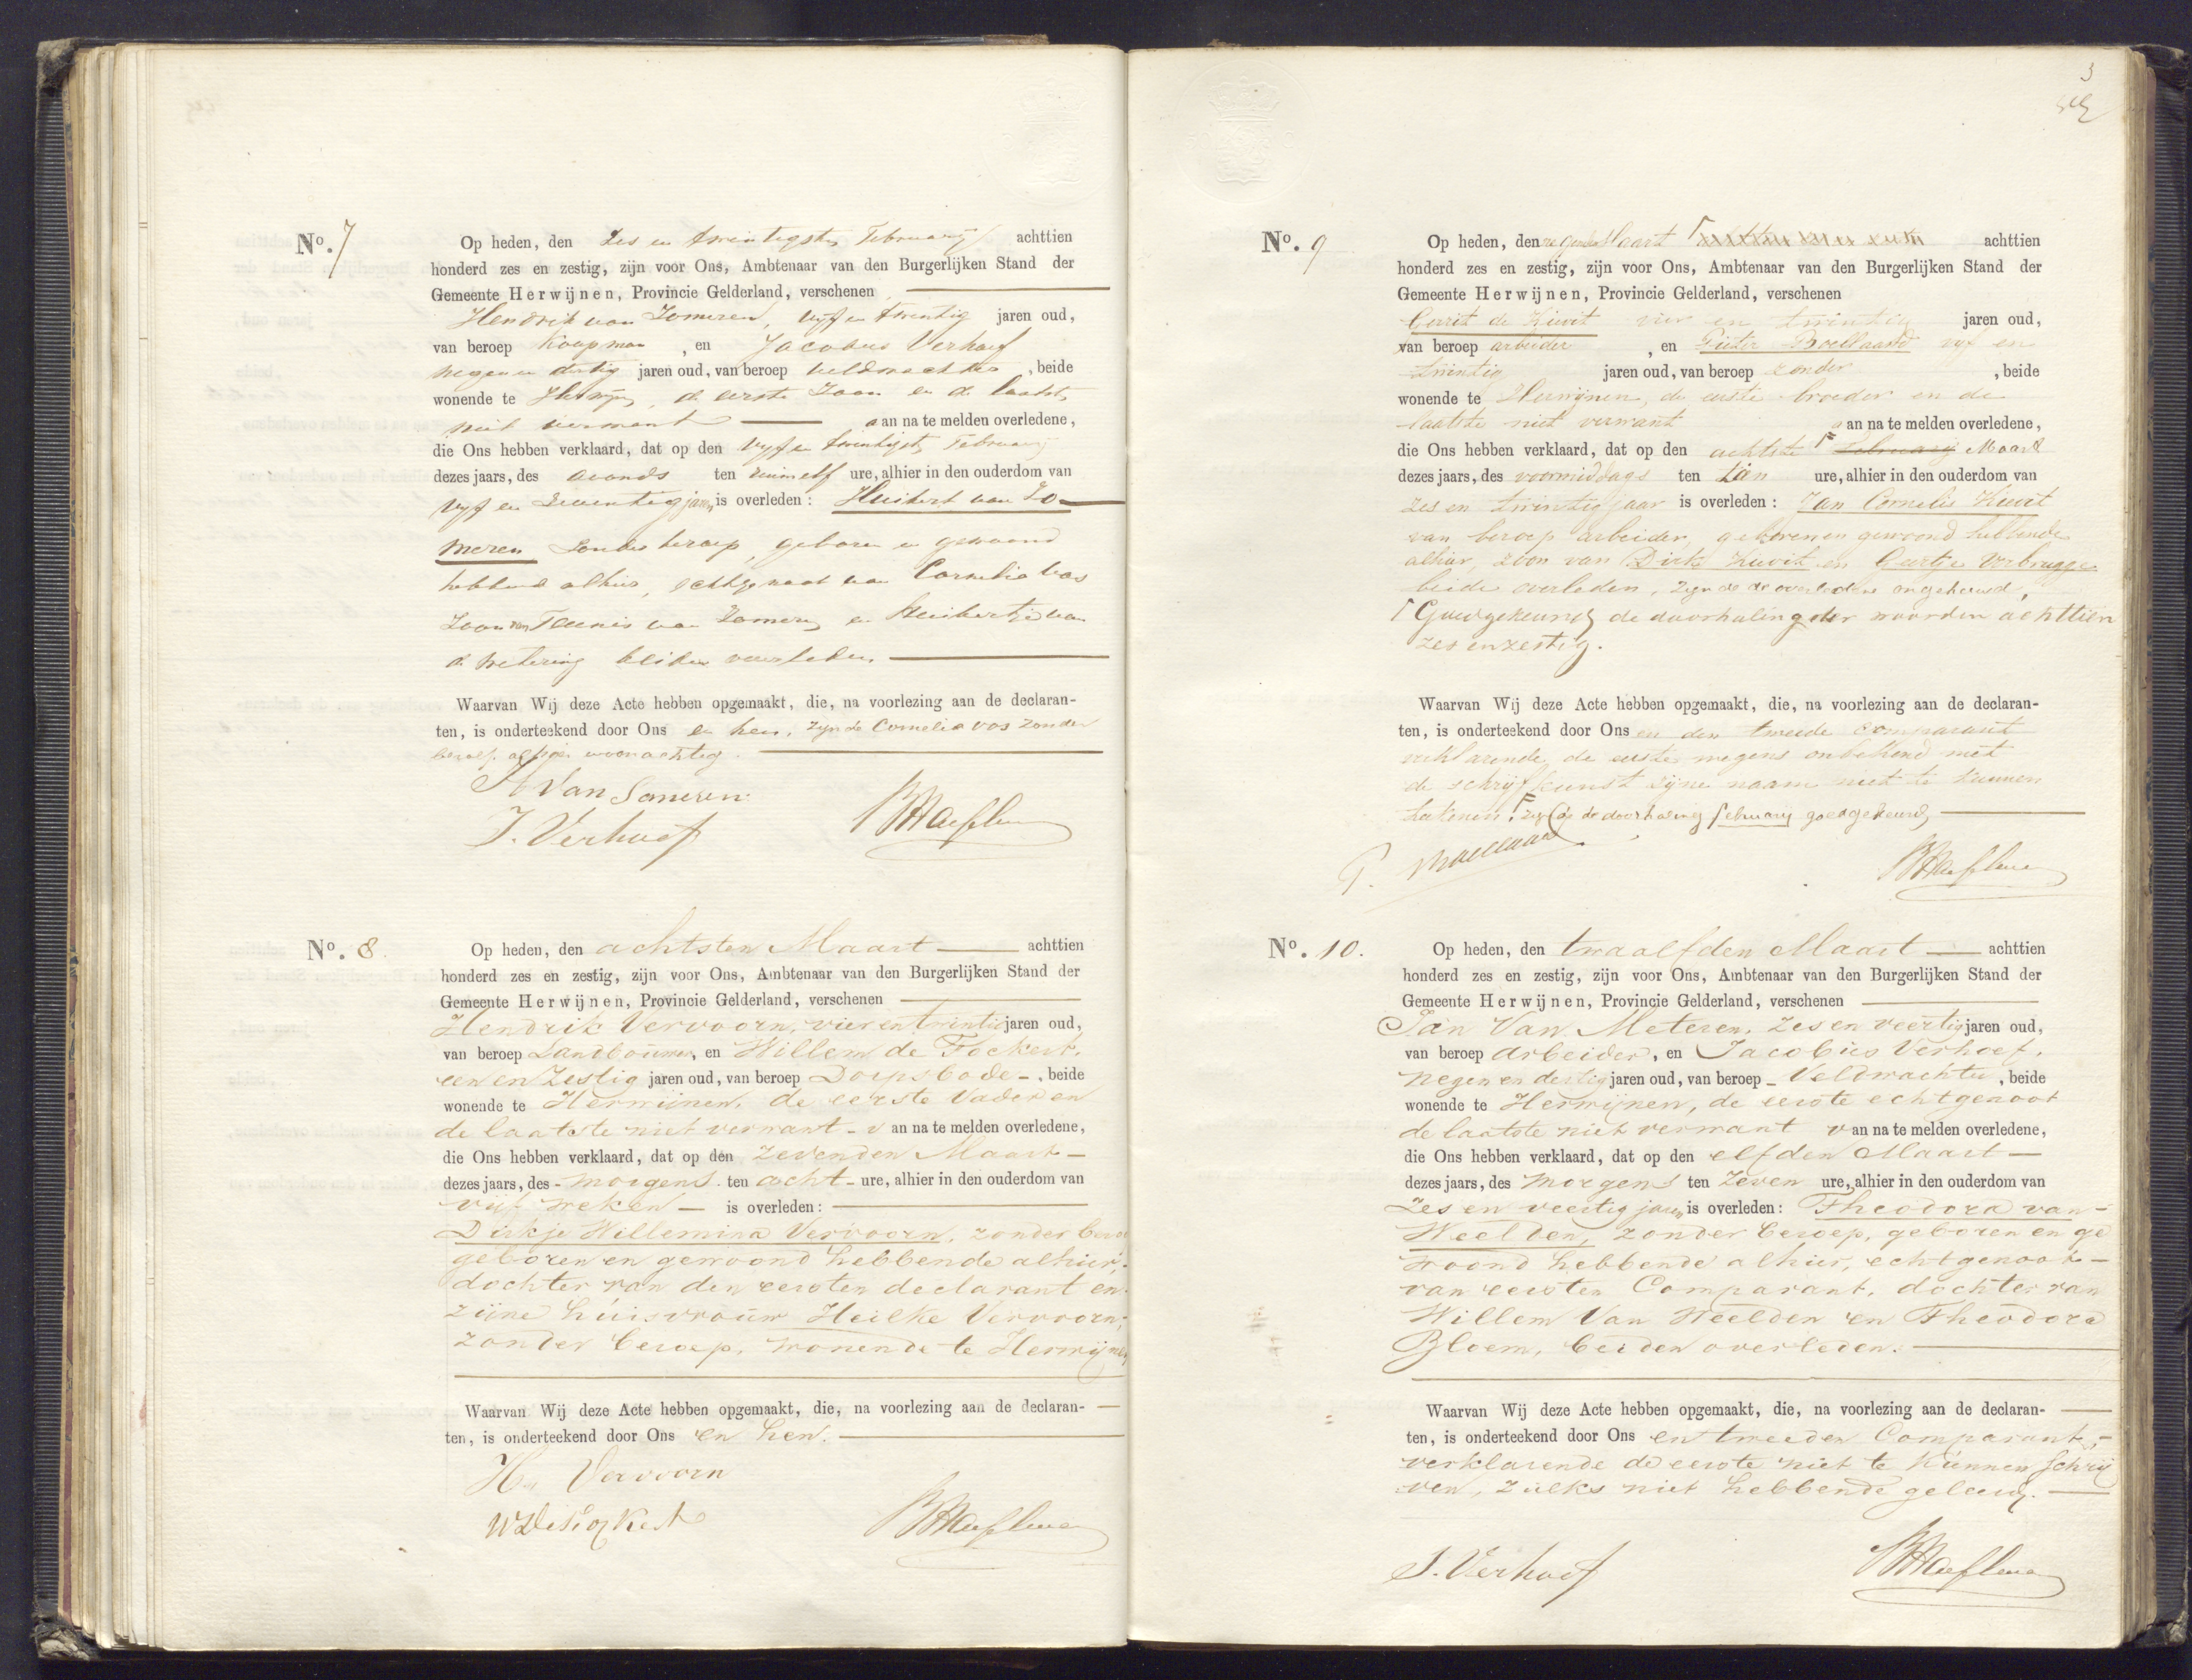 No. 7
Op heden, den Zes en twintigsten February achttien
honderd zes en zestig, zijn voor Ons, Ambtenaar van den Burgerlijken Stand der
Gemeente Herwijnen, Provincie Gelderland, verschenen
Hendrik van Zomeren, vyf en twintig jaren oud,
van beroep Koopman, en Jacobus Verhoef
negen en dertig jaren oud, van beroep veldwachter, beide
wonende te Herwijnen, de eerste Zoon en de laatste
niet verwant van na te melden overledene,
die Ons hebben verklaard, dat op den vyf en twintigste February
dezes jaars, des avonds ten ure, alhier in den ouderdom van
vyf en Seventig jaren is overleden: Huibert van Zo-
meren Zonder beroep, geboren en gewoond
hebbend alhier, echtgenoot van Cornelia Vos
Zoon van Teunis van Zomeren en Huibertje van
de Wetering beiden overleden.
Waarvan Wij deze Acte hebben opgemaakt, die, na voorlezing aan de declaran-
ten, is onderteekend door Ons en hen, zynde Cornelia Vos zonder
beroep alhier woonachtig
H Van Someren
J. Verhoef
No. 8
Op heden, den achtsten Maart achttien
honderd zes en zestig, zijn voor Ons, Ambtenaar van den Burgerlijken Stand der
Gemeente Herwijnen, Provincie Gelderland, verschenen
Hendrik Vervoorn, vier en twintig jaren oud,
van beroep Landbouwer, en Willem de Fockert,
een en Zestig jaren oud, van beroep Dorpsbode, beide
wonende te Herwijnen, de eerste Vader en
de laatste niet verwant van na te melden overledene,
die Ons hebben verklaard, dat op den Zevenden Maart
dezes jaars, des morgens ten acht ure, alhier in den ouderdom van
vijf weken is overleden:
Dirkje Willemina Vervoorn, zonder beroep
geboren en gewoond hebbende alhier,
dochter van den eersten declarant en
zijne huisvrouw Heilke Vervoorn,
zonder beroep, wonende te Herwijnen
Waarvan Wij deze Acte hebben opgemaakt, die, na voorlezing aan de declaran-
ten, is onderteekend door Ons en hen.
H. Vervoorn
W De Fockert
3
No. 9
Op heden, den negenden Maart achttien
honderd zes en zestig, zijn voor Ons, Ambtenaar van den Burgerlijken Stand der
Gemeente Herwijnen, Provincie Gelderland, verschenen
Gerrit de Kievit vier en twintig jaren oud,
van beroep arbeider, en Pieter Boellaard vyf en
twintig jaren oud, van beroep zonder, beide
wonende te Herwijnen, de eerste broeder en de
laatste niet verwant van na te melden overledene,
die Ons hebben verklaard, dat op den achtste February Maart
dezes jaars, des voormiddags ten tien ure, alhier in den ouderdom van
zes en twintig jaar is overleden: Jan Cornelis Kievit
van beroep arbeider, geboren en gewoond hebbende
alhier, zoon van Dirk Kievit en Geertje Verbrugge
beide overleden, zynde de overledene ongehuwd,
Goedgekeurd de doorhaling der woorden achttien
zes en zestig.
Waarvan Wij deze Acte hebben opgemaakt, die, na voorlezing aan de declaran-
ten, is onderteekend door Ons en den tweede comparant
verklarende de eerste wegens onbekend met
de schryfkunst zijne naam niet te kunnen
de doorhaling february goedgekeurd
P. Boellaard
No. 10.
Op heden, den twaalfden Maart achttien
honderd zes en zestig, zijn voor Ons, Ambtenaar van den Burgerlijken Stand der
Gemeente Herwijnen, Provincie Gelderland, verschenen
Jan Van Meteren, zes en veertig jaren oud,
van beroep Arbeider, en Jacobus Verhoef,
negen en dertig jaren oud, van beroep Veldwachter, beide
wonende te Herwijnen, de eerste echtgenoot
de laatste niet verwant van na te melden overledene,
die Ons hebben verklaard, dat op den elfden Maart
dezes jaars, des morgens ten zeven ure, alhier in den ouderdom van
Zes en veertig jaren is overleden: Theodora van
Weelden, zonder beroep, geboren en ge
woond hebbende alhier, echtgenoot
van eersten Comparant, dochter van
Willem Van Weelden en Theodora
Bloem, beiden overleden.
Waarvan Wij deze Acte hebben opgemaakt, die, na voorlezing aan de declaran-
ten, is onderteekend door Ons en tweeden Comparant,
verklarende de eerste niet te kunnen schrij
ven, zulks niet hebbende geleerd.
J. Verhoef